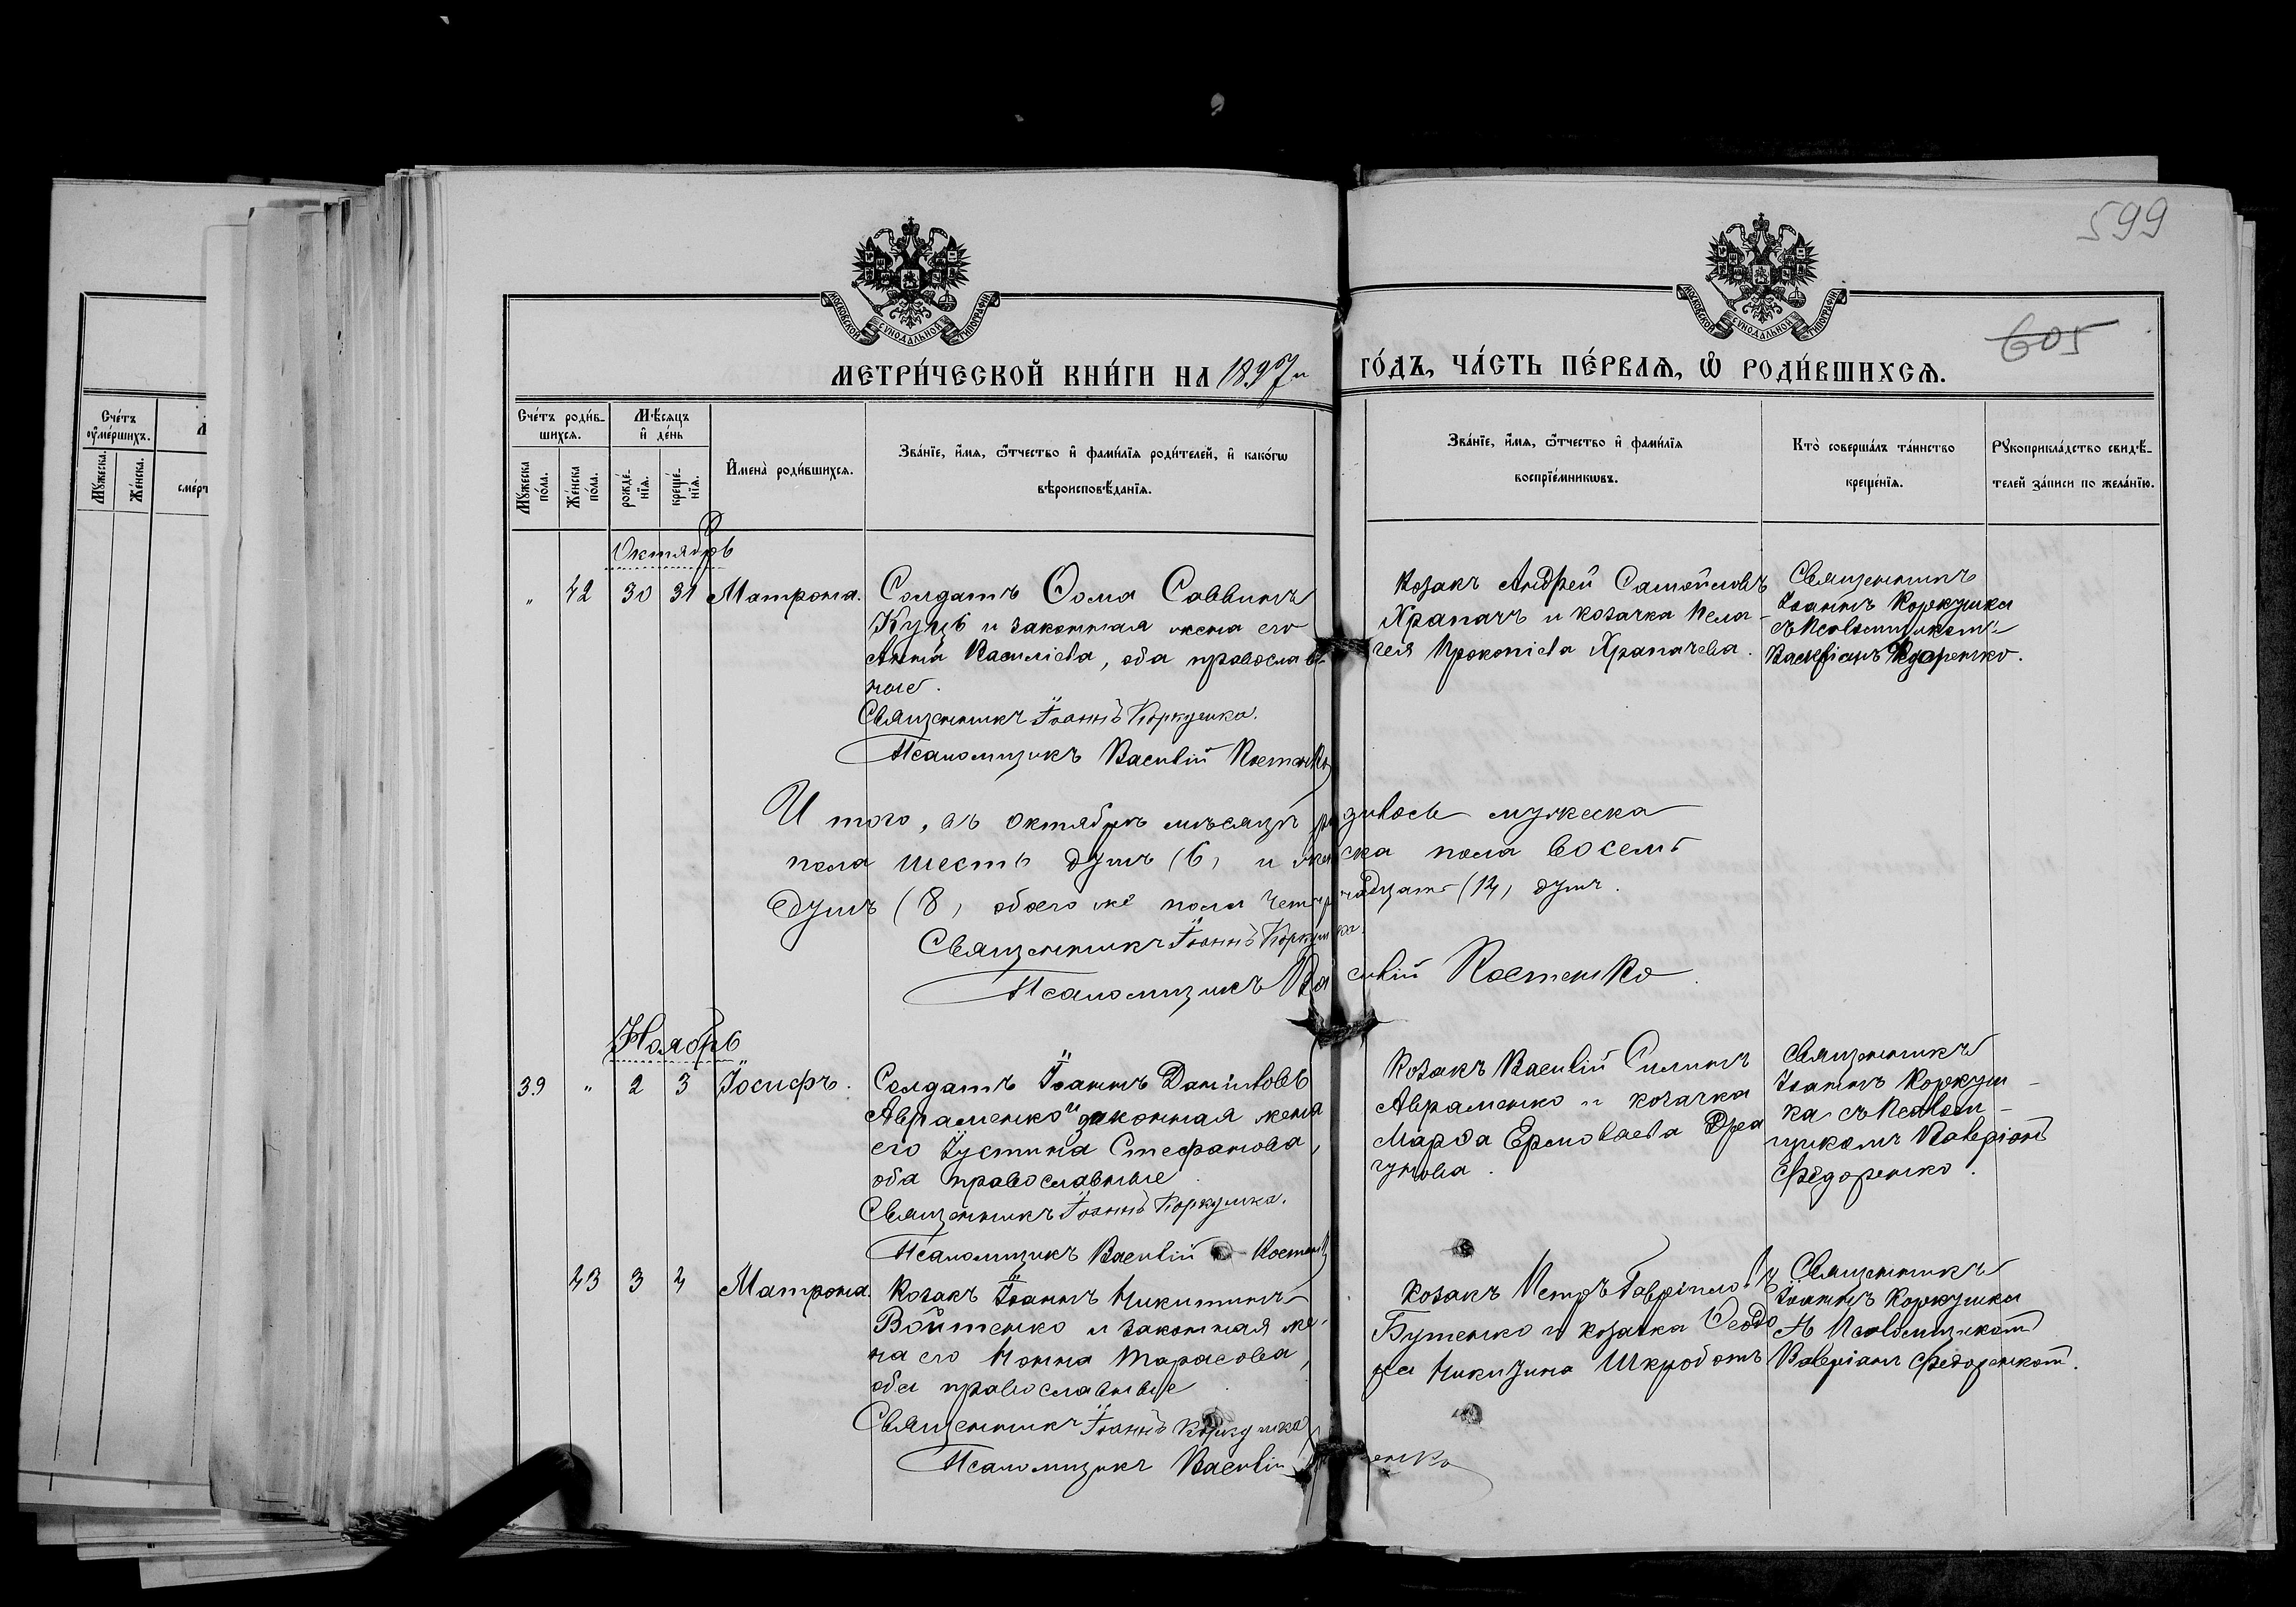 599
605
МОСКОВСКОЙ СУНОДАЛЬНОЙ ТИПОГРАФІИ
МОСКОВСКОЙ СУНОДАЛЬНОЙ ТИПОГРАФІИ
МЕТРИ́ЧЕСКОЙ КНИ́ГИ НА 1897й ГО́ДЪ, ЧА́СТЬ ПЕ́РВАѦ, Ѡ҆ РОДИ́ВШИХСѦ.
Сче́тъ оу҆ме́ршихъ.
Мꙋ́жеска.
Же́нска.
Сче́тъ роди́в-
шихсѧ.
Мꙋ́жеска по́ла.
Же́нска по́ла.
Мѣ́сѧцъ
и҆ де́нь
рожде́-
нїѧ.
креще́-
нїѧ.
И҆мена̀ роди́вшихсѧ.
Зва́нїе, и҆́мѧ, ѻ҆́тчество и҆ фами́лїѧ роди́телей, и҆ како́гѡ
вѣроисповѣ́данїѧ.
Зва́нїе, и҆́мѧ, ѻ҆́тчество и҆ фами́лїѧ
воспрїе́мникѡвъ.
Кто̀ соверша́лъ та́инство
креще́нїѧ.
Рꙋкоприкла́дство свидѣ́-
телей за́писи по жела́нїю.
Октябрь
" 42 30 31 Матрона.
Солдатъ Ѳома Саввинъ
Куцъ и законная жена его
Анна Василіева, оба православ-
ные.
Священникъ Іоаннъ Коркушка.
Псаломщикъ Василій Костенко
Козакъ Андрей Самойловъ
Храпачъ и козачка Пела-
гея Прокопіева Храпачева.
Священникъ
Іоаннъ Коркушка
съ Псаломщикомъ
И того, въ Октябрѣ мѣсяцѣ родилось мужеска
пола шесть душъ (6) и женска пола восемь
душъ (8) обоего же пола четырнадцать (14) душъ.
Священникъ Іоаннъ Коркушка.
Псаломщикъ Василій Костенко.
Ноябрь
39 " 2 3 Іосифъ.
Солдатъ Іоаннъ Даниловъ
Авраменко и законная жена
его Іустина Стефанова,
оба православные
Священникъ Іоаннъ Коркушка.
Псаломщикъ Василій Костенко
Козакъ Василій Силинъ
Авраменко и козачка
Марѳа Ермолаева
Священникъ
Іоаннъ Коркуш-
ка съ Псалом-
щикомъ Валеріаномъ
Федоренко.
43 3 4 Матрона.
Козакъ Іоаннъ Никитинъ
Войтенко и законная же-
на его Нонна Тарасова,
оба православные
Священникъ Іоаннъ Коркушка
Псаломщикъ Василій Костенко
Козакъ Петръ Гавріиловъ
Бутенко и козачка Ѳеодо
ра Никитина
Священникъ
Іоаннъ Коркушка
съ Псаломщикомъ
Валеріаномъ Федоренкомъ.